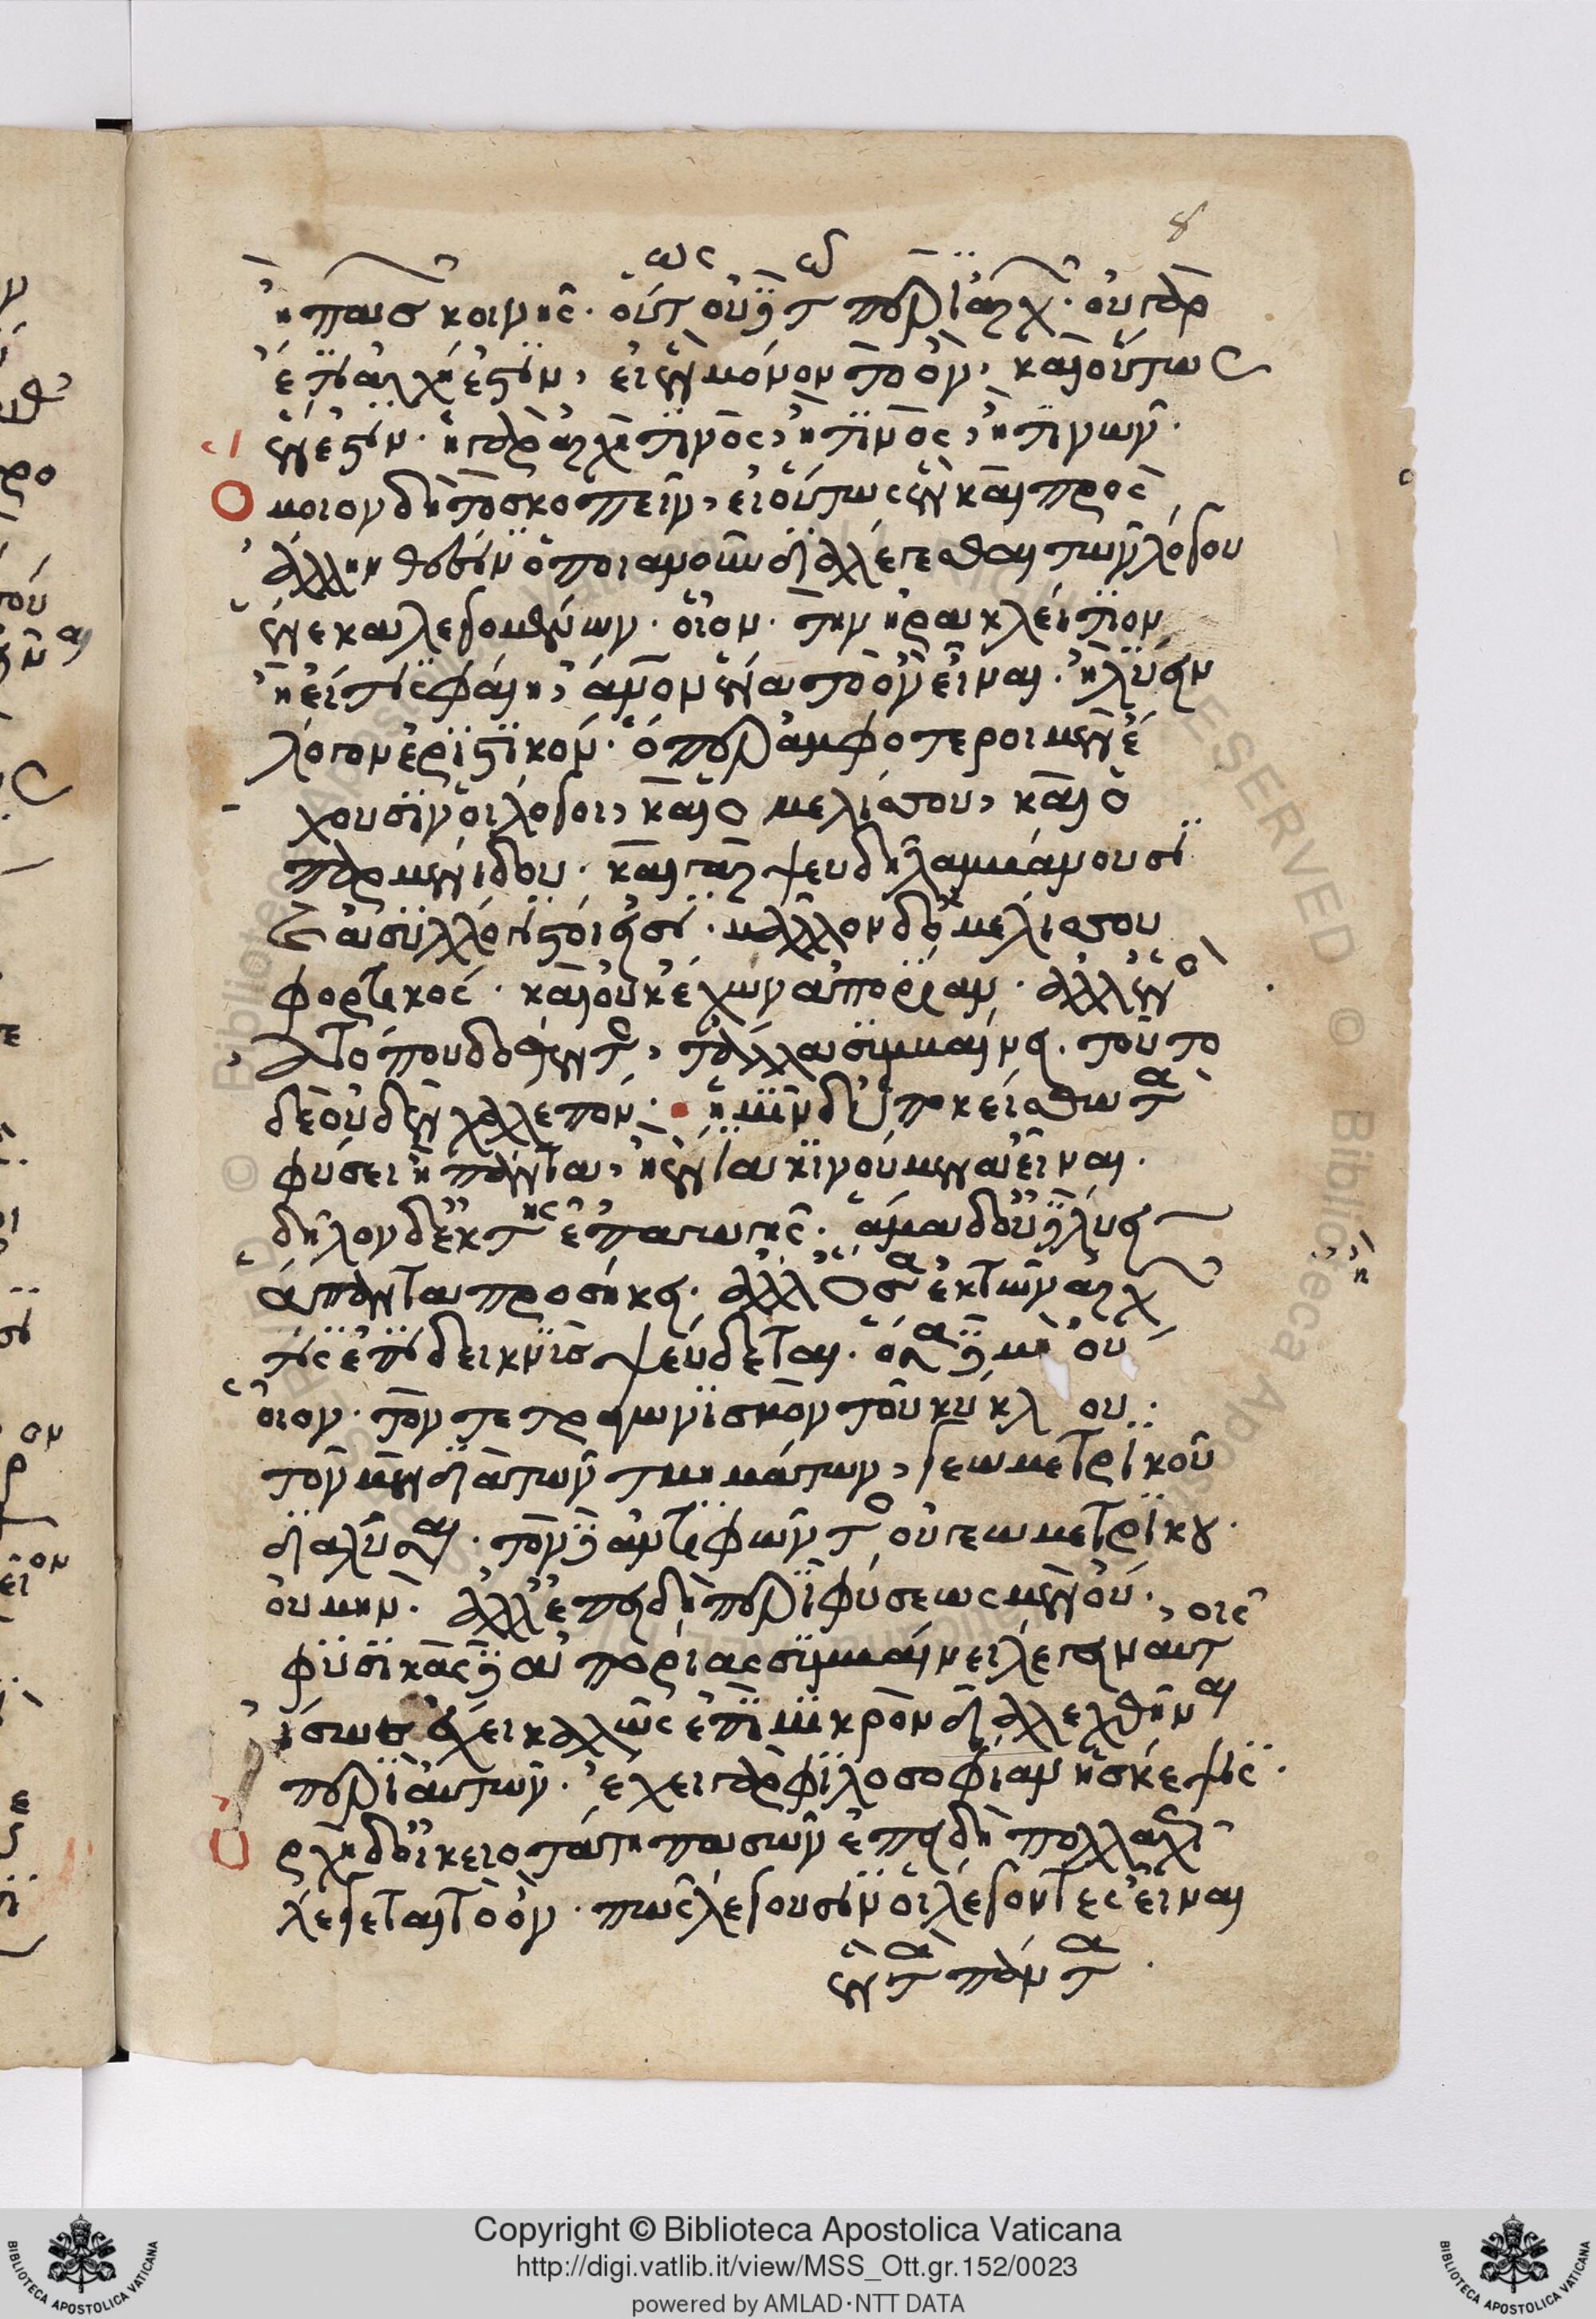 8
ἢ πασῶν κοινῆς· οὕτως οὐδὲ τῷ περὶ ἀρχῶν· οὐ γὰρ
ἔτι ἀρχὴ ἐστὶν, εἰ ἓν μόνον τὸ ὂν, καὶ οὕτως
ἓν ἐστίν. ἡ γὰρ ἀρχὴ τινὸς, ἢ τινὸς, ἢ τινῶν.
Ὅμοιον δὴ τὸ σκοπεῖν, εἰ οὕτως ἓν καὶ πρὸς
ἄλλην θέσιν ὁποιανοῦν διαλέγεσθαι τῶν λόγου
ἕνεκα λεγομένων. οἷον. τὴν ἡρακλείτιον
ἢ εἴ τις φαίη, ἄνον ἕνα τὸ ὂν εἶναι. ἢ λύειν
λόγον ἐριστικόν. ὅπερ ἀμφότεροι μὲν ἔ
χουσιν οἱ λόγοι, καὶ ὁ μελίσσου, καὶ ὁ
παρμενίδου. καὶ γὰρ ψευδῆ λαμβάνουσι
καὶ ἀσυλλόγιστοί εἰσι. μᾶλλον δ' ὁ μελίσσου
φορτικὸς. καὶ οὐκ ἔχων ἀπορίαν. ἀλλ' ἑνὸς
ἀτόπου δοθέντος, τἄλλα συμβαίνει. τοῦτο
δὲ οὐδὲν χαλεπόν. ἡμῖν δ' ὑποκείσθω τὰ
φύσει ἢ πάντα, ἢ ἔνια κινούμενα εἶναι.
δῆλον δ' ἐκ τῆς ἐπαγωγῆς. ἅμα δ' οὐδὲ λύειν
ἅπαντα προσήκει. ἀλλ' ἢ ὅσα ἐκ τῶν ἀρχῶν
τὶς ἐπιδεικνὺς ψεύδεται. ὅσα δὲ μὴ οὔ
οἷον. τὸν τετραγωνισμὸν τοῦ κύκλου.
τὸν μὲν διὰ τῶν τμημάτων, γεωμετρικοῦ
διαλῦσαι. τὸν δὲ ἀντιφῶντος οὐ γεωμετρικοῦ.
οὐ μὴν. ἀλλ' ἐπειδὴ περὶ φύσεως μὲν οὔ.
φυσικὰς δὲ ἀπορίας συμβαίνει λέγειν αὐτοῖς
ἴσως ἔχει καλῶς ἐπὶ μικρὸν διαλεχθῆναι
περὶ αὐτῶν. ἔχει γὰρ φιλοσοφίαν ἡ σκέψις.
ρχὴ δ' οἰκειοτάτη πασῶν ἐπειδὴ πολλαχῶς
λέγεται τὸ ὄν. πῶς λέγουσιν οἱ λέγοντες εἶναι
ἓν τὰ πάντα.
Copyright © Biblioteca Apostolica Vaticana
http://digi.vatlib.it/view/MSS_Ott.gr.152/0023
powered by AMLAD·NTT DATA